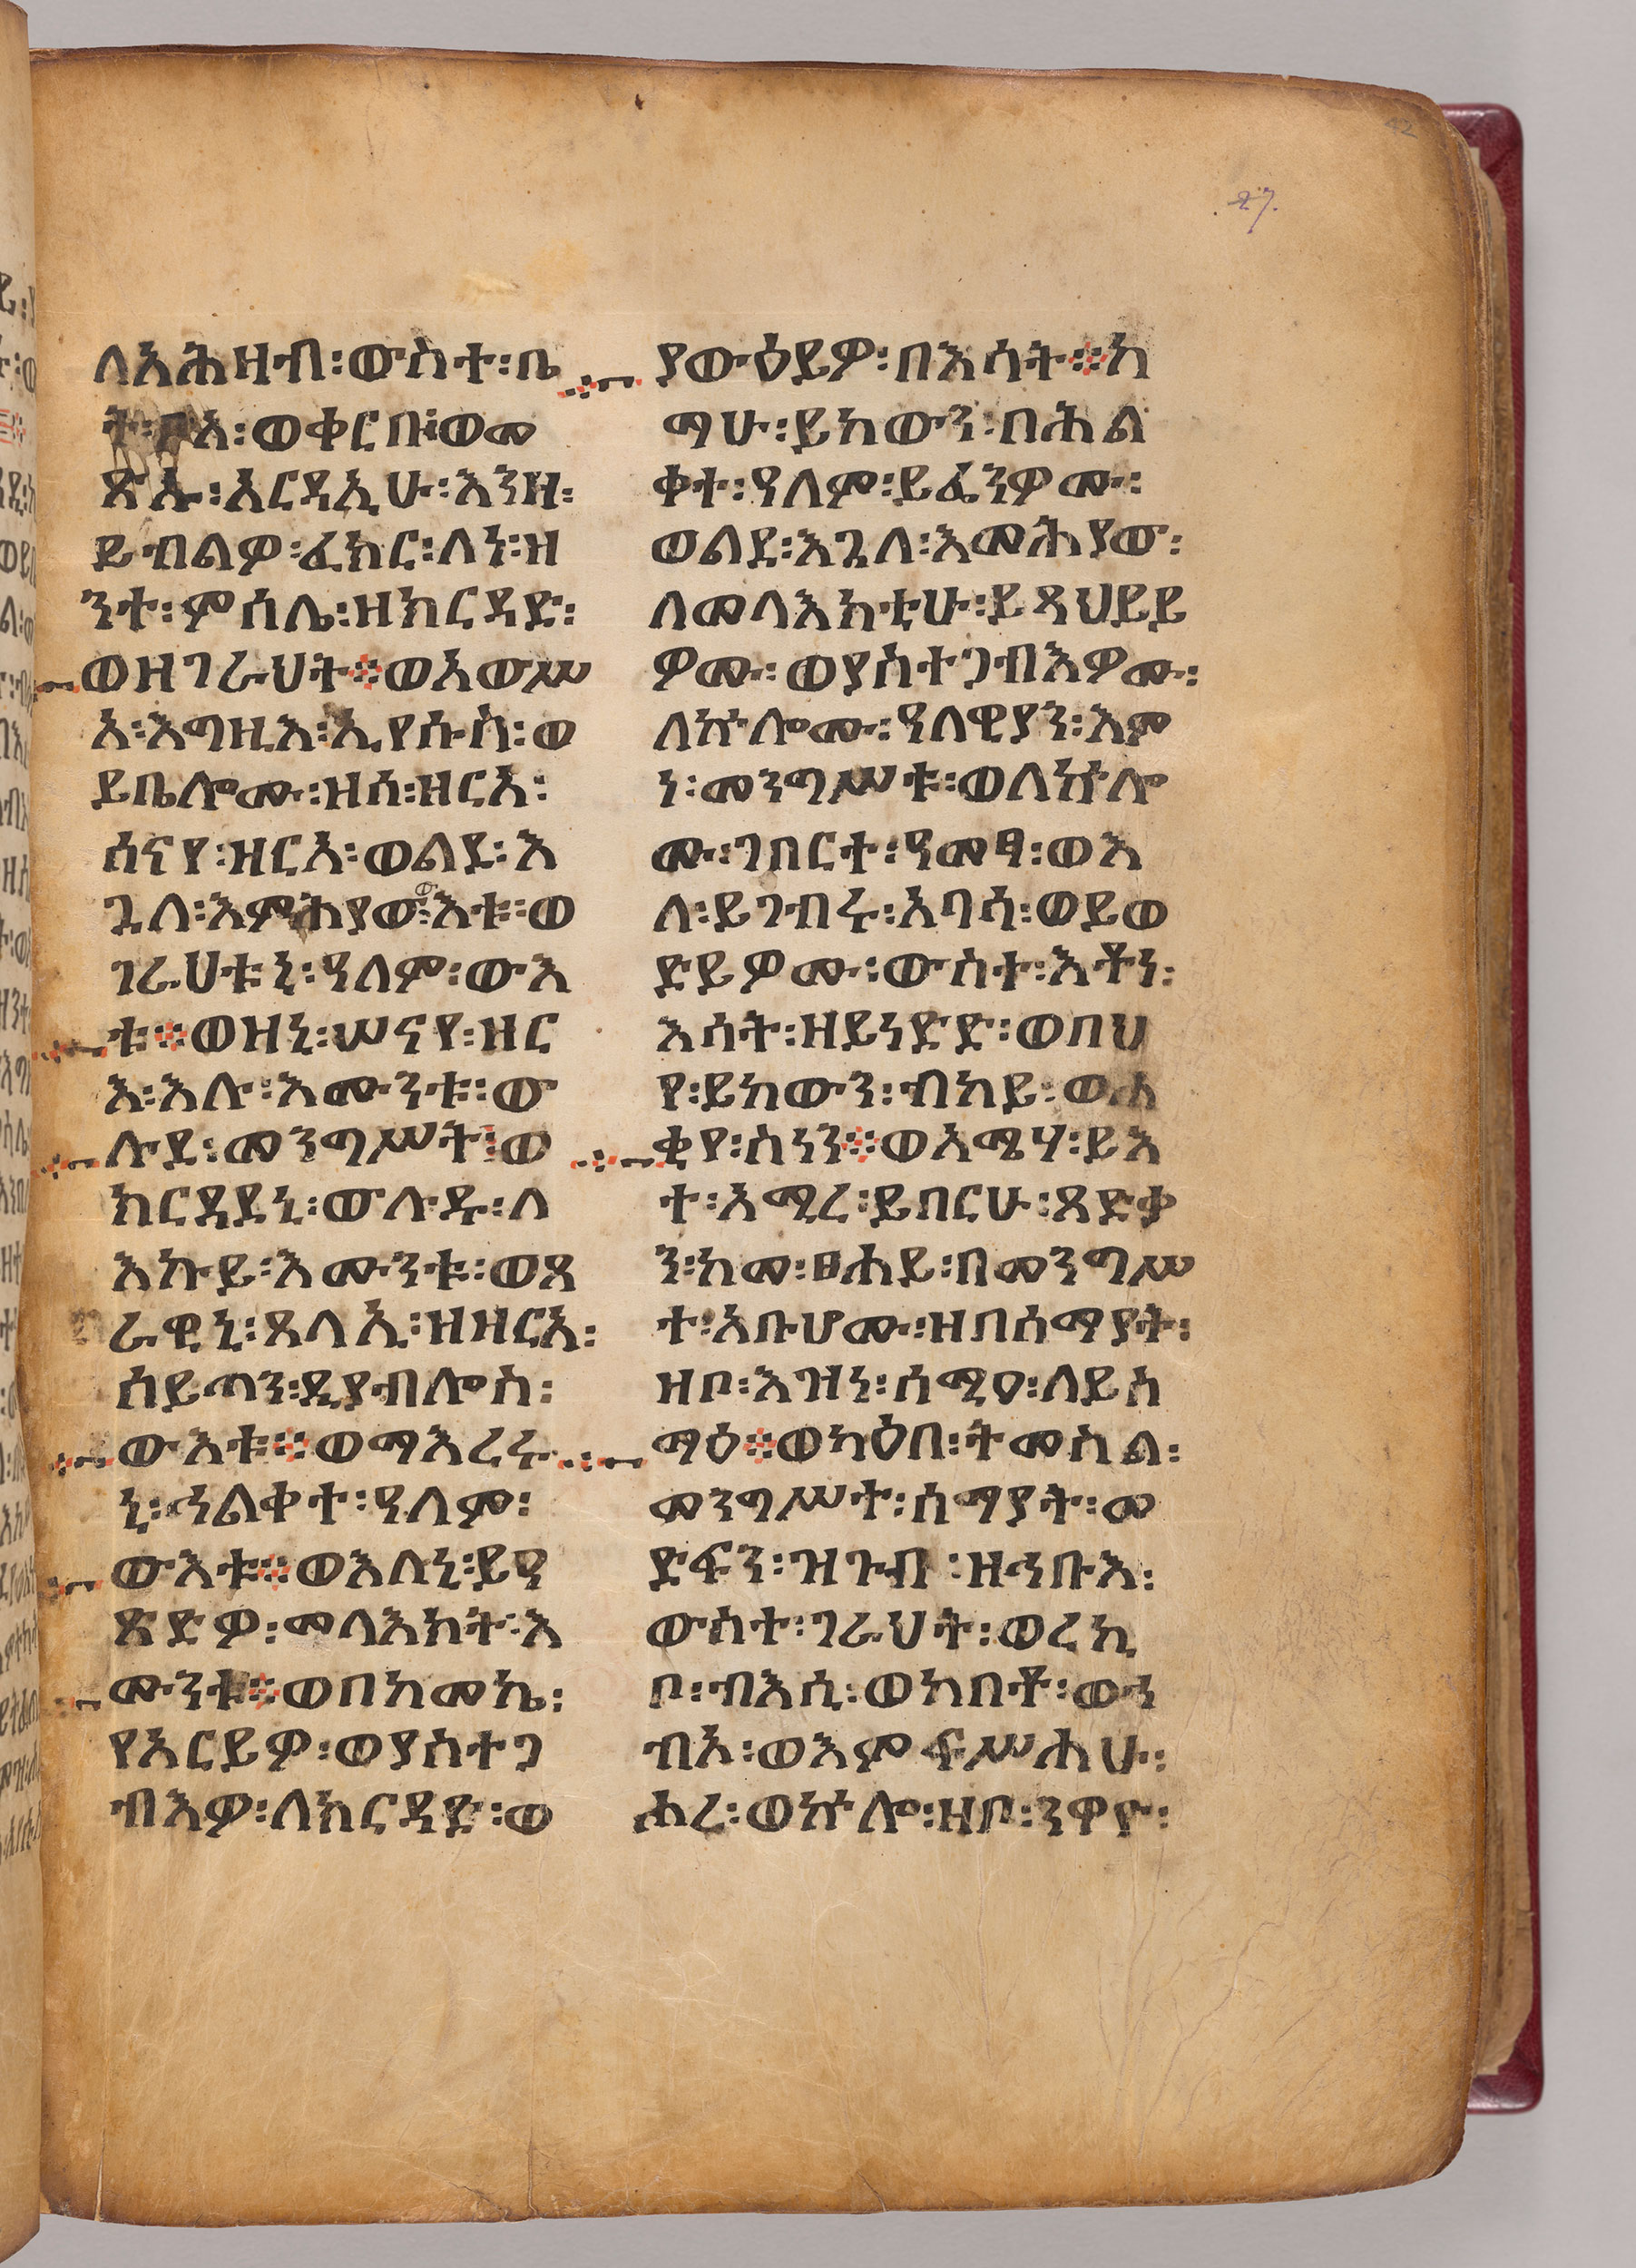 42
27.
ለአሕዛብ፡ውስተ፡ቤ
ት፡ቦአ፡ወቀርቡ፡ወመ
ጽኡ፡አርዳኢሁ፡እንዘ፡
ይብልዎ፡ፈክር፡ለነ፡ዘ
ንተ፡ምሳሌ፡ዘክርዳድ፡
ወዘገራህት፨ወአውሥ
አ፡እግዚእ፡ኢየሱስ፡ወ
ይቤሎሙ፡ዘሰ፡ዘርአ፡
ሰናየ፡ዝርአ፡ወልደ፡እ
ጓለ፡እምሕያው፡ውእቱ፡ወ
ገራህቱኒ፡ዓለም፡ውእ
ቱ፨ወዝኒ፡ሠናየ፡ዘር
እ፡እሉ፡እሙንቱ፡ው
ሉደ፡መንግሥት፡ወ
ክርዳደኒ፡ውሉዱ፡ለ
እኩይ፡እሙንቱ፡ወጸ
ራዊኒ፡ጸላኢ፡ዘዘርአ፡
ሰይጣን፡ዲያብሎስ፡
ውእቱ፨ወማእረሩ
ኒ፡ኅልቀተ፡ዓለም፡
ውእቱ፨ወእለኒ፡ይዓ
ጽድዎ፡መላእክት፡እ
ሙንቱ፨ወበከመኬ፡
የአርይዎ፡ወያስተጋ
ብእዎ፡ለክርዳድ፡ወ
ያውዕይዎ፡በእሳት፨ከ
ማሁ፡ይከውን፡በሕል
ቀተ፡ዓለም፡ይፌንዎሙ፡
ወልደ፡እጓለ፡እመሕያው፡
ለመላእክቲሁ፡ይጻህይይ
ዎሙ፡ወያስተጋብእዎሙ፡
ለኵሎሙ፡ዓለዊያን፡እም
ነ፡መንግሥቱ፡ወለኵሎ
ሙ፡ገበርተ፡ዓመፃ፡ወእ
ለ፡ይገብሩ፡አባሳ፡ወይወ
ድይዎሙ፡ውስተ፡እቶነ፡
እሳት፡ዘይነድድ፡ወበህ
የ፡ይከውን፡ብካይ፡ወሐ
ቂየ፡ስነን፨ወአሜሃ፡ይእ
ተ፡አሚረ፡ይበርሁ፡ጻድቃ
ን፡ከመ፡ፀሐይ፡በመንግሥ
ተ፡አቡሆሙ፡ዘበሰማያት፡
ዘቦ፡እዝነ፡ሰሚዐ፡ለይስ
ማዕ፨ወካዕበ፡ትመስል፡
መንግሥተ፡ሰማያት፡መ
ድፍን፡ዝጉብ፡ዘኅቡእ፡
ውስተ፡ገራህት፡ወረኪ
ቦ፡ብእሲ፡ወከበቶ፡ወኀ
ብአ፡ወእምፍሥሐሁ፡
ሖረ፡ወኵሎ፡ዘቦ፡ንዋዮ፡